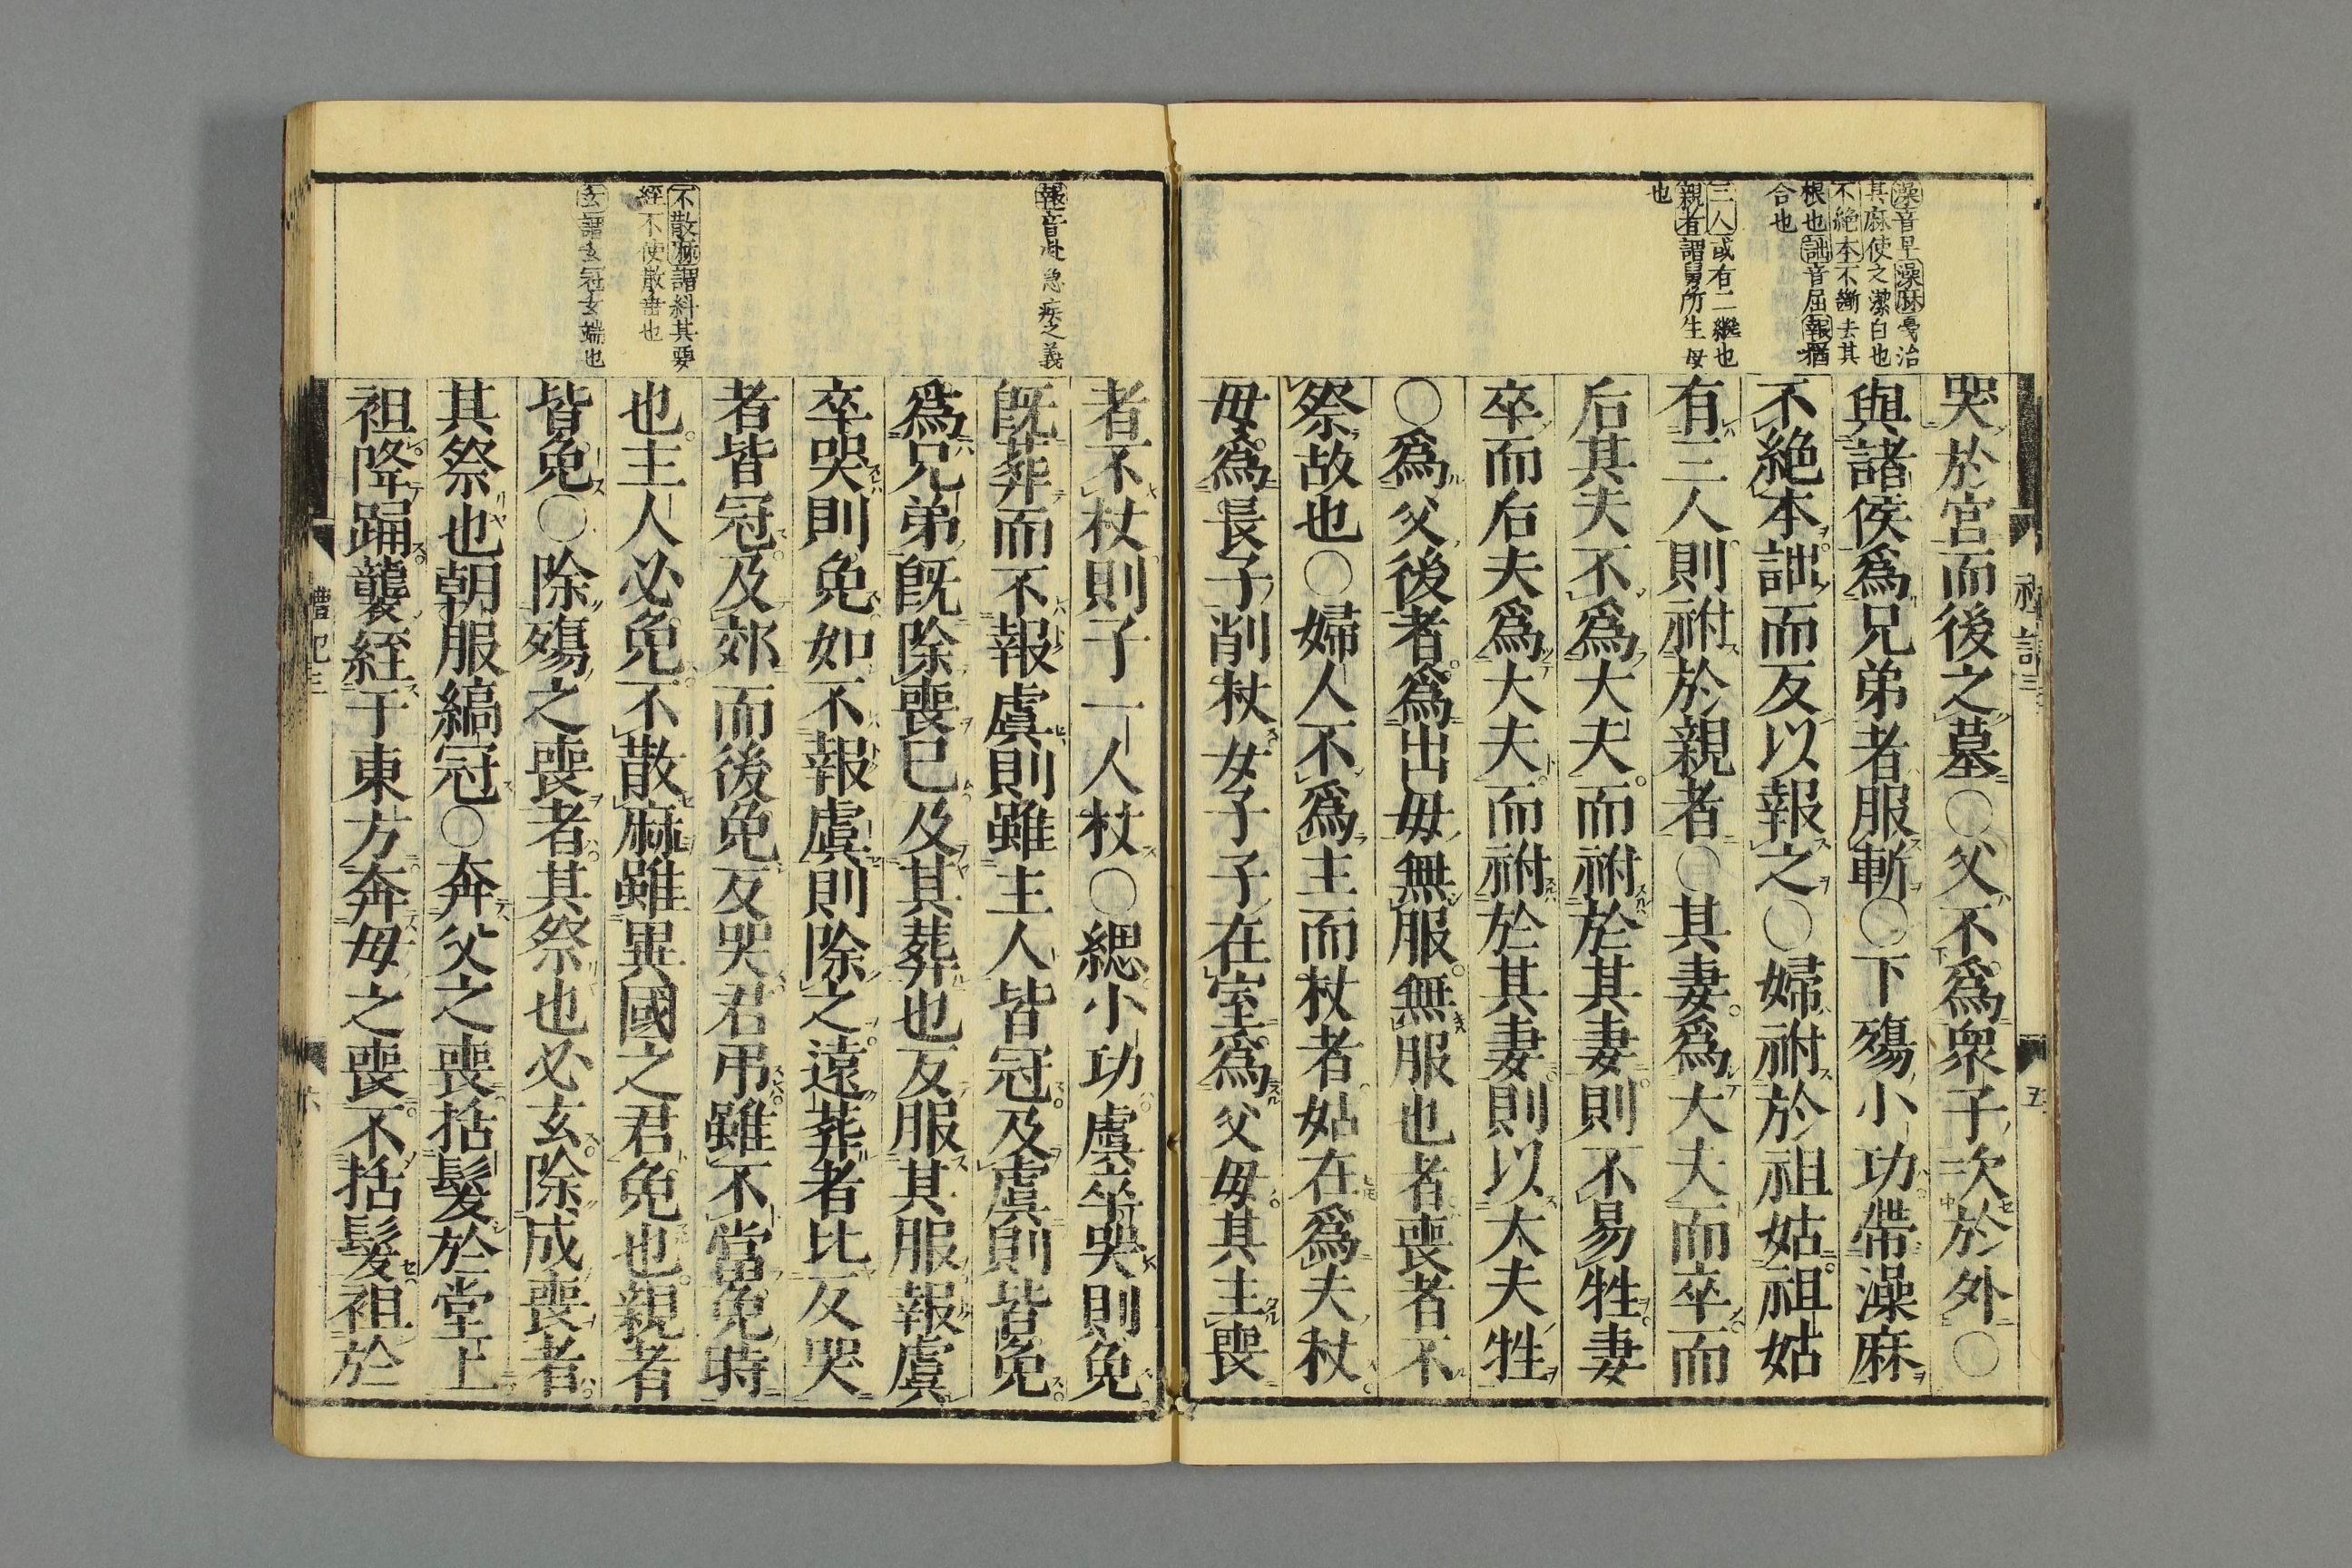 澡音早澡麻戞治
其麻使之潔白也
不絶本不斷去其
根也詘音屈報猶
合也
三人或有二繼也
親者謂舅所生母
也
哭於宮而後之墓○父不爲衆子次於外○
與諸侯爲兄弟者服斬○下殤小功帶澡麻
不絶本詘而反以報之○婦祔於祖姑祖姑
有三人則祔於親者○其妻爲大夫而卒而
后其夫不爲大夫而祔於其妻則不易牲妻
卒而后夫爲大夫而祔於其妻則以大夫牲
○爲父後者爲出母無服無服也者喪者不
祭故也○婦人不爲主而杖者姑在爲夫杖
母爲長子削杖女子子在室爲父母其主喪
報音赴急疾之義
不散麻謂糾其要
絰不使散垂也
玄謂玄冠玄端也
者不杖則子一人杖○緦小功虞卒哭則免
既葬而不報虞則雖主人皆冠及虞則皆免
爲兄弟既除喪已及其葬也反服其服報虞
卒哭則免如不報虞則除之遠葬者比反哭
者皆冠及郊而後免反哭君弔雖不當免時
也主人必免不散麻雖異國之君免也親者
皆免○除殤之喪者其祭也必玄除成喪者
其祭也朝服縞冠○奔父之喪括髮於堂上
袒降踊襲絰于東方奔母之喪不括髮袒於
禮記三
六
五